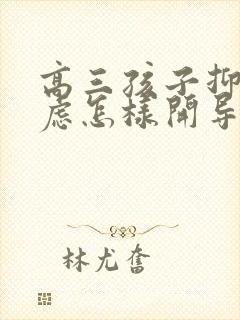 高三孩子抑
虑怎样开导
林尤奋